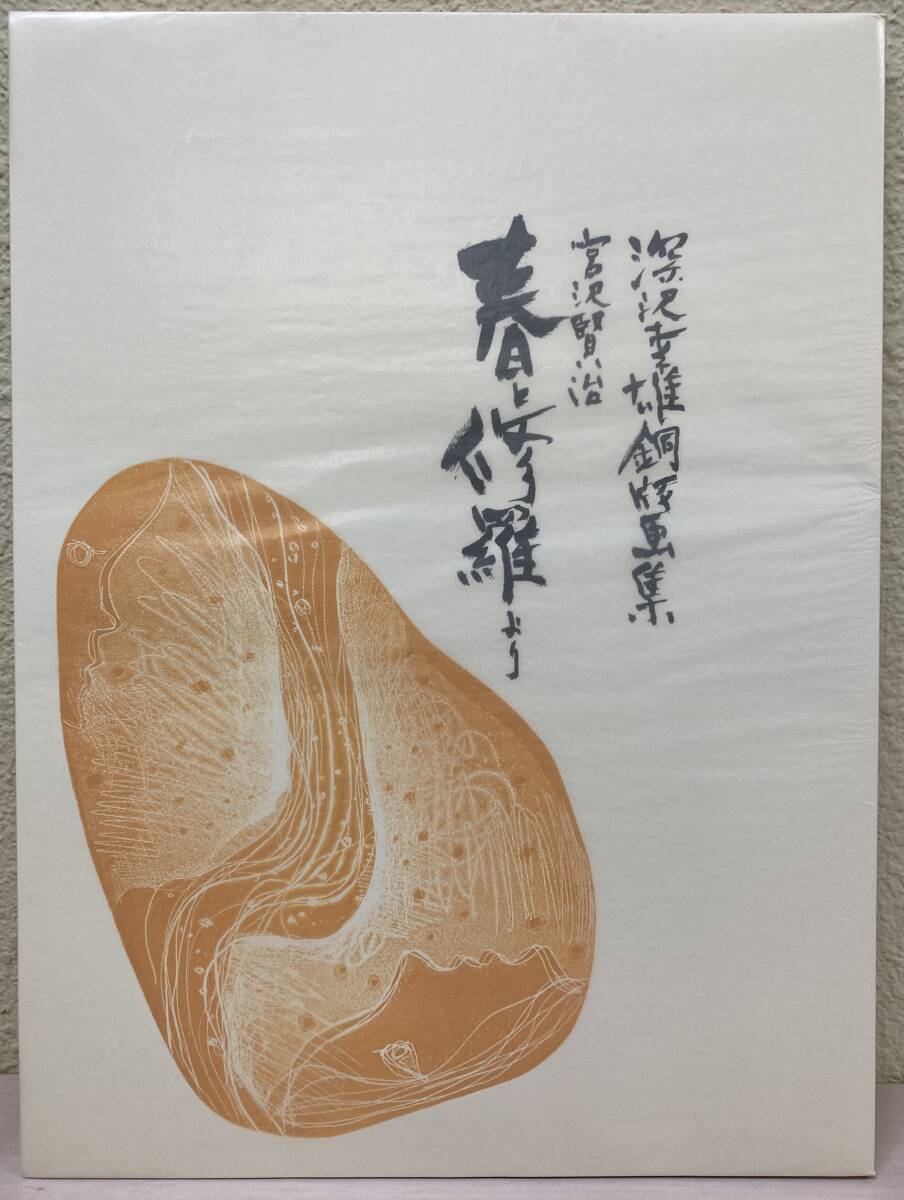 深沢幸雄銅版画集
宮沢賢治
春と修羅より